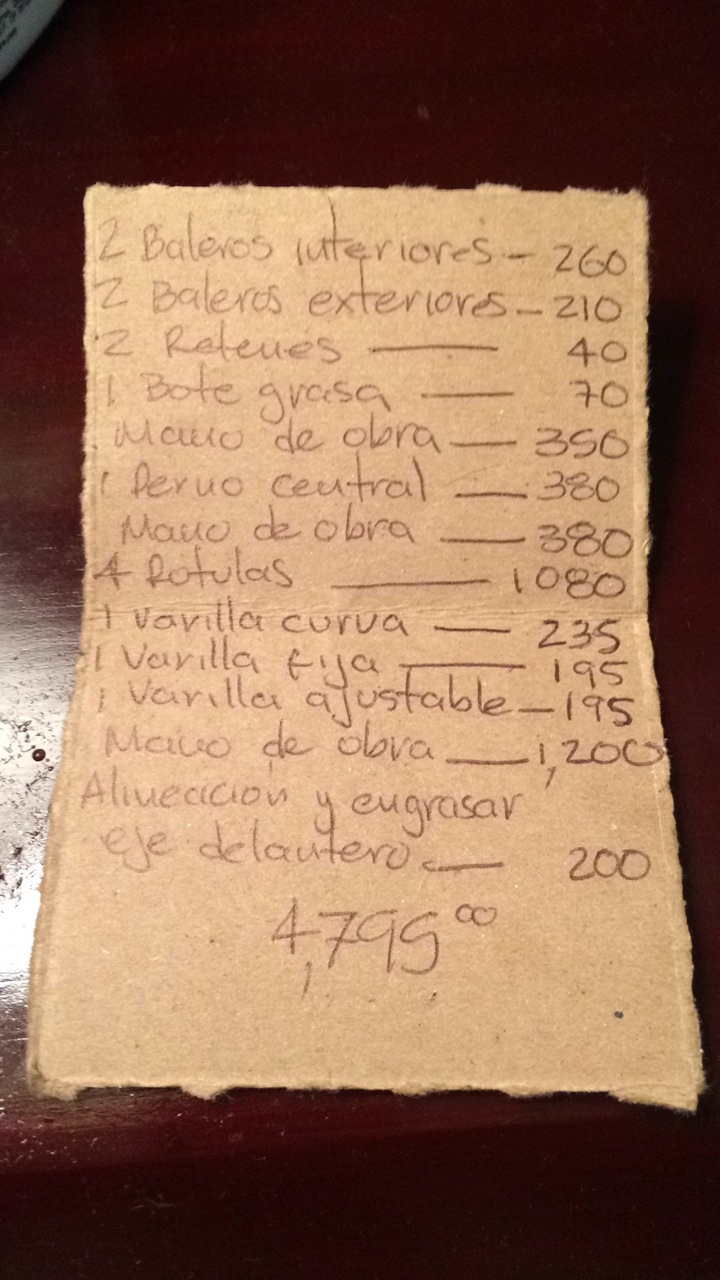 2 Baleros interiores - 260
2 Baleros exteriores - 210
2 Retenes — 40
1 Bote grasa — 70
Mano de obra — 350
1 Perno central — 380
Mano de obra — 380
4 Rotulas — 1080
1 Varilla curva — 235
1 Varilla fija — 195
1 Varilla ajustable - 195
Mano de obra — 1,200
Alineación y engrasar
eje delantero — 200
4,795 00